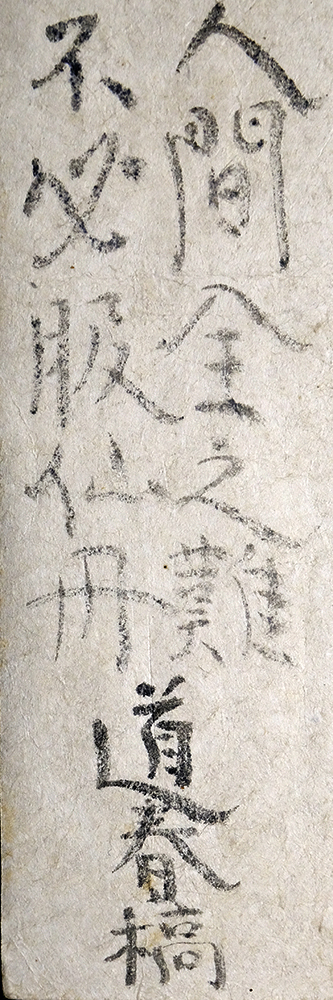 人間全之難
不必服仙丹
道春稿